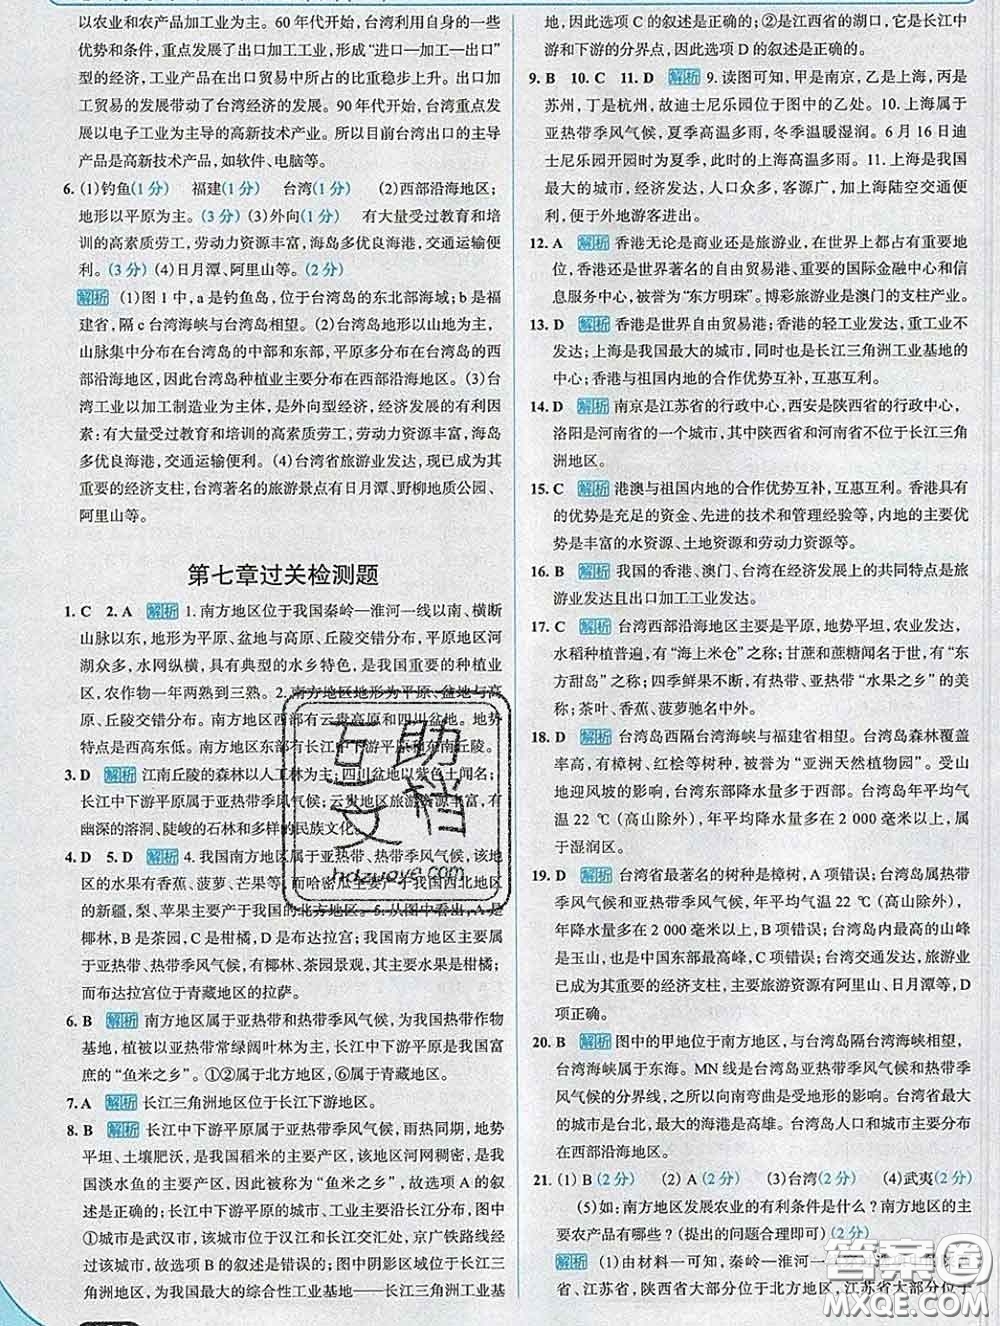 以农业和农产品加工业为主。60 年代开始,台湾利用自身的一些
优势和条件,重点发展了出口加工工业,形成“进口—加工—出口”
型的经济,工业产品在出口贸易中所占的比重稳步上升。出口加
工贸易的发展带动了台湾经济的发展。90 年代开始,台湾重点发
展以电子工业为主导的高新技术产业。所以目前台湾出口的主导
产品是高新技术产品,如软件、电脑等。
6. (1)钓鱼(1 分) 福建(1 分) 台湾(1 分) (2)西部沿海地区;
地形以平原为主。(3 分) (3)外向(1 分) 有大量受过教育和培
训的高素质劳工,劳动力资源丰富,海岛多优良海港,交通运输便
利。(3 分) (4)日月潭、阿里山等。(2 分)
解析 (1)图 1 中,a 是钓鱼岛,位于台湾岛的东北部海域;b 是福
建省,隔 c 台湾海峡与台湾岛相望。(2)台湾岛地形以山地为主,
山脉集中分布在台湾岛的中部和东部,平原多分布在台湾岛的西
部沿海地区,因此台湾岛种植业主要分布在西部沿海地区。(3)台
湾工业以加工制造业为主体,是外向型经济,经济发展的有利条件
素:有大量受过教育和培训的高素质劳工,劳动力资源丰富,海岛
多优良海港,交通运输便利。(4)台湾省旅游业发达,现已成为其
重要的经济支柱,台湾著名的旅游景点有日月潭、野柳地质公园、
阿里山等。
第七章过关检测题
1. C 2. A 解析 1. 南方地区位于我国秦岭—淮河一线以南、横断
山脉以东,地形为平原、盆地与高原、丘陵交错分布,平原地区河
湖众多,水网纵横,具有典型的水乡特色,是我国重要的种植业
区,农作物一年两熟到三熟。2. 南方地区地形为平原、盆地与高
原、丘陵交错分布。南方地区西部有云贵高原和四川盆地。地势
特点是西高东低。南方地区东部有长江中下游平原和东南丘陵。
3. D 解析 江南丘陵的森林以人工林为主;四川盆地以紫色土闻名;
长江中下游平原属于亚热带季风气候;云贵地区旅游资源丰富,有
幽深的溶洞、陡峻的石林和多样的民族文化
4. D 5. D 解析 4. 我国南方地区属于亚热带、热带季风气候,该地
区的水果有香蕉、菠萝、芒果等。而哈密瓜主要产于我国西北地区
的新疆,梨、苹果主要产于我国的北方地区。5. 从图中看出,A 是
椰林,B 是茶园,C 是柑橘,D 是布达拉宫;我国南方地区主要属
于亚热带、热带季风气候,有椰林、茶园景观,其主要水果是柑橘;
而布达拉宫位于青藏地区的拉萨。
6. B 解析 南方地区属于亚热带和热带季风气候,为我国热带作物
基地,植被以亚热带常绿阔叶林为主,长江中下游平原是我国富
庶的“鱼米之乡”。①②属于北方地区,⑥属于青藏地区。
7. A 解析 长江三角洲地区位于长江下游地区。
8. B 解析 长江中下游平原属于亚热带季风气候,雨热同期,地势
平坦、土壤肥沃,是我国稻米的主要产区,该地区河网稠密,是我
国淡水鱼的主要产区,该地区被称为“鱼米之乡”,故选项 A 的叙
述是正确的;长江中下游平原的城市、工业主要沿长江分布,图中
①城市是武汉市,该城市位于汉江和长江交汇处,京广铁路线经
过该城市,故选项 B 的叙述是错误的;图中阴影区域位于长江三
角洲地区,为我国最大的综合性工业基地——长江三角洲工业基
地,因此选项 C 的叙述是正确的;②是江西省的湖口,它是长江中
游和下游的分界点,因此选项 D 的叙述是正确的。
9. B 10. C 11. D 解析 9. 读图可知,甲是南京,乙是上海,丙是
苏州,丁是杭州,故迪士尼乐园位于图中的乙处。10. 上海属于
亚热带季风气候,夏季高温多雨,冬季温暖湿润。6 月 16 日迪
士尼乐园开园时为夏季,此时的上海高温多雨。11. 上海是我国
最大的城市,经济发达,人口众多,客源广,加上海陆空交通便
利,便于外地游客进出。
12. A 解析 香港无论是商业还是旅游业,在世界上都占有重要地
位;香港还是世界著名的自由贸易港、重要的国际金融中心和信
息服务中心,被誉为“东方明珠”。博彩旅游业是澳门的支柱产业。
13. D 解析 香港是世界自由贸易港;香港的轻工业发达,重工业不
发达;上海是我国最大的城市,同时也是长江三角洲工业基地的
中心;香港与祖国内地的合作优势互补,互惠互利。
14. D 解析 南京是江苏省的行政中心,西安是陕西省的行政中心,
洛阳是河南省的一个城市,其中陕西省和河南省不位于长江三角
洲地区。
15. C 解析 港澳与祖国内地的合作优势互补,互惠互利。香港具有
的优势是充足的资金、先进的技术和管理经验等,内地的主要优
势是丰富的水资源、土地资源和劳动力资源等。
16. B 解析 我国的香港、澳门、台湾在经济发展上的共同特点是旅
游业发达且出口加工工业发达。
17. C 解析 台湾西部沿海地区主要是平原,地势平坦,农业发达,
水稻种植普遍,有“海上米仓”之称;甘蔗和蔗糖闻名于世,有“东
方甜岛”之称;四季鲜果不断,有热带、亚热带“水果之乡”的美
称;茶叶、香蕉、菠萝驰名中外。
18. D 解析 台湾岛西隔台湾海峡与福建省相望。台湾岛森林覆盖
率高,有樟树、红桧等树种,被誉为“亚洲天然植物园”。受山
地迎风坡的影响,台湾东部降水量多于西部。台湾岛年平均气
温 22 ℃(高山除外),年降水量多在 2 000 毫米以上,属
于湿润区。
19. D 解析 台湾省最著名的树种是樟树,A 项错误;台湾岛属热带
季风气候和亚热带季风气候,年平均气温 22 ℃(高山除外),
年降水量多在 2 000 毫米以上,B 项错误;台湾岛内最高的山峰
是玉山,也是中国东部最高峰,C 项错误;台湾交通发达,旅游业
已成为其支柱产业,主要旅游资源有阿里山、日月潭等,D
项正确。
20. B 解析 图中的甲地位于南方地区,与台湾岛隔台湾海峡相望,
台湾海峡属于东海。MN 线是台湾岛亚热带季风气候和热带季风
气候的分界线,之所以向南弯曲是受地形的影响。台湾省最大
的城市是台北,最大的海港是高雄。台湾岛人口和城市主要分布
在西部沿海地区。
21. (1) B(2 分) (2) A(2 分) (3)台湾(2 分) (4)武夷(2 分)
(5)如:南方地区发展农业的有利条件是什么?南方地区的主
要农产品有哪些?(提出的问题合理即可)(2 分)
解析 (1)由材料一可知,秦岭—淮河一
省、江苏省,陕西省大部分位于北方地区,江苏省大部分位于
互助
文档
hdzuoye.com
答案卷
MXQE.COM